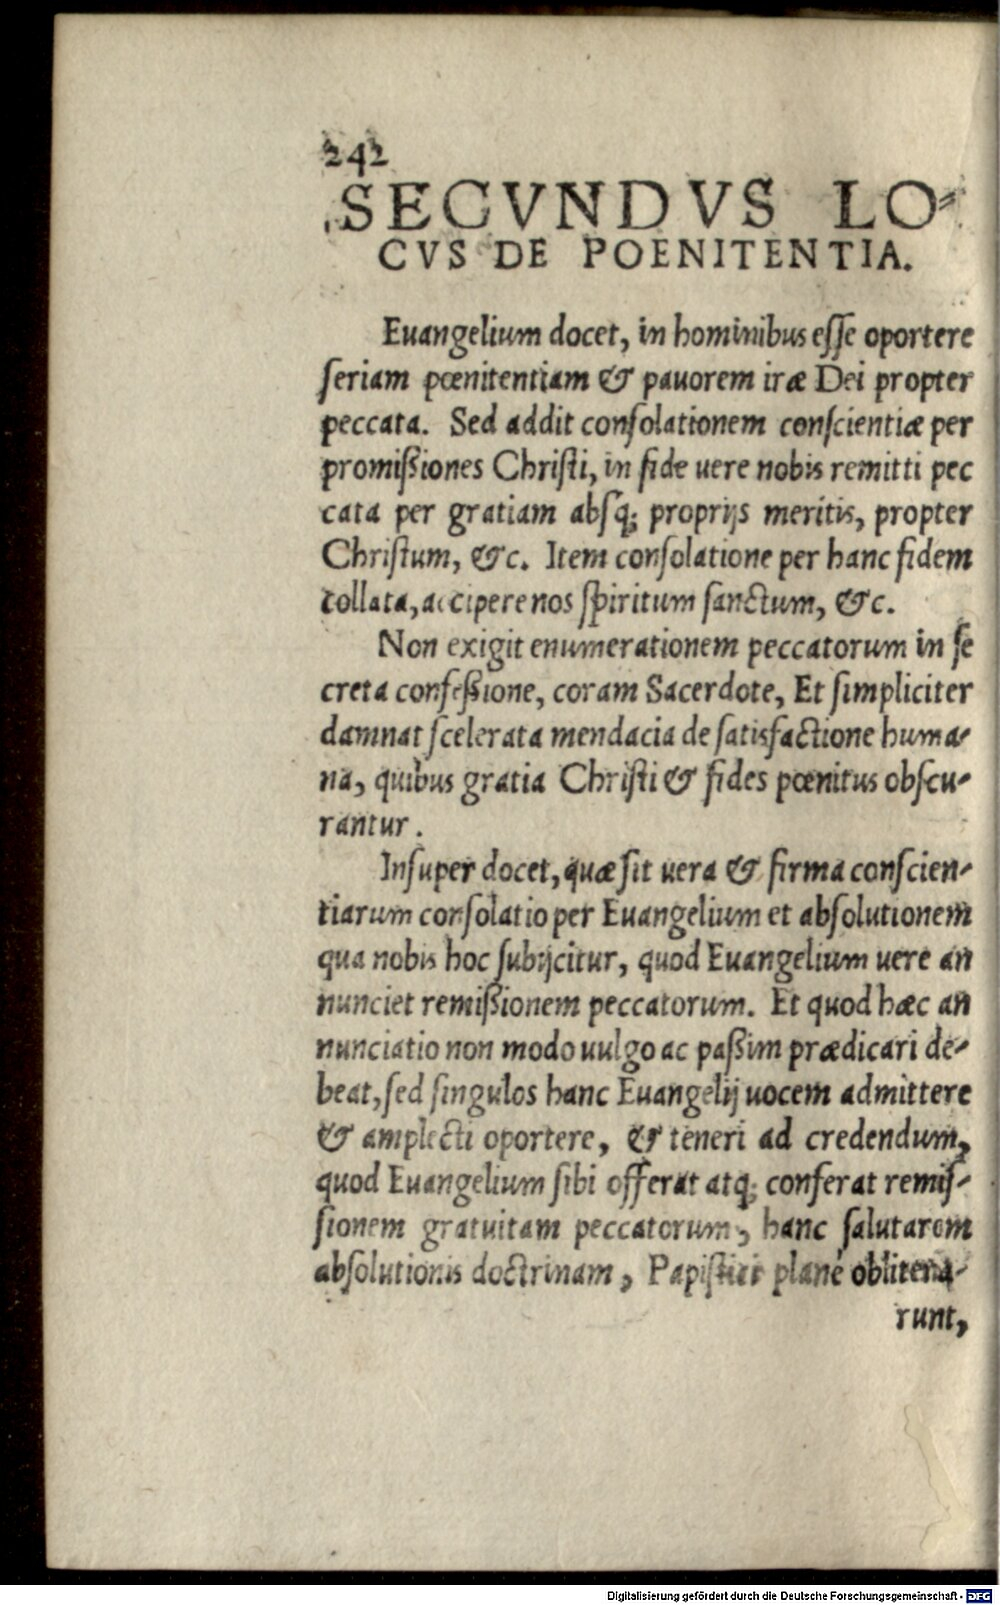 242
SECVNDVS LO-
CVS DE POENITENTIA.
Euangelium docet, in hominibus esse oportere
seriam pœnitentiam & pauorem iræ Dei propter
peccata. Sed addit consolationem conscientiæ per
promißiones Christi, in fide uere nobis remitti pec
cata per gratiam absq; proprijs meritis, propter
Christum, &c. Item consolatione per hanc fidem
collata, accipere nos spiritum sanctum, &c.
Non exigit enumerationem peccatorum in se
creta confeßione, coram Sacerdote, Et simpliciter
damnat scelerata mendacia de satisfactione huma-
na, quibus gratia Christi & fides pœnitus obscu-
rantur.
Insuper docet, quæ sit uera & firma conscien-
tiarum consolatio per Euangelium et absolutionem
qua nobis hoc subijcitur, quod Euangelium uere an
nunciet remißionem peccatorum. Et quod hæc an
nunciatio non modo uulgo ac paßim prædicari de-
beat, sed singulos hanc Euangelij uocem admittere
& amplecti oportere, & teneri ad credendum,
quod Euangelium sibi offerat atq; conferat remis-
sionem gratuitam peccatorum, hanc salutarem
absolutionis doctrinam, Papistici planè oblitera-
runt,
Digitalisierung gefördert durch die Deutsche Forschungsgemeinschaft - DFG